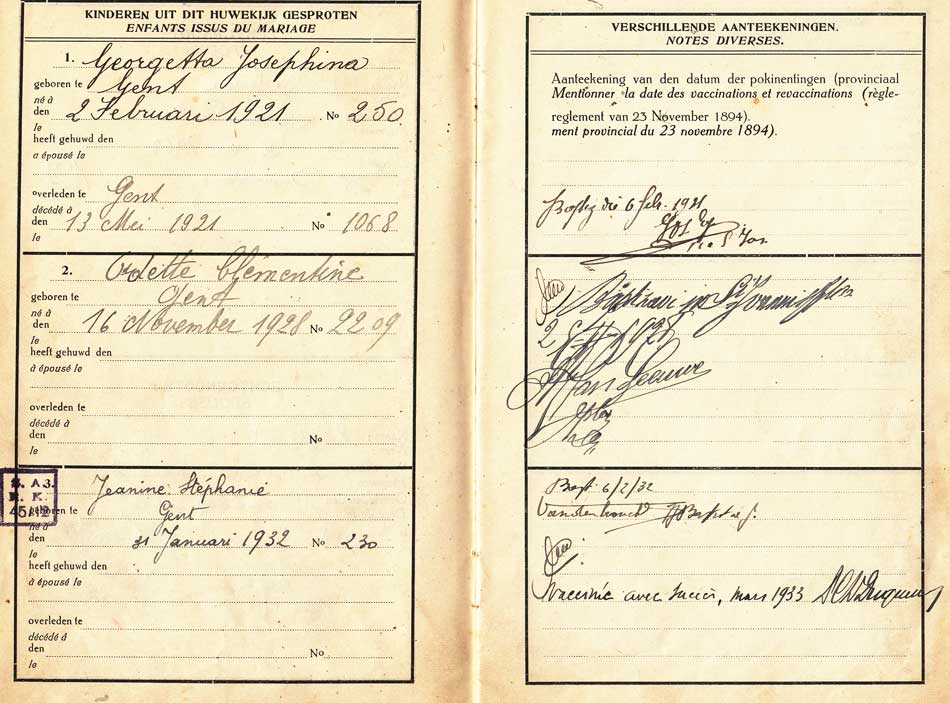 KINDEREN UIT DIT HUWEKIJK GESPROTEN
ENFANTS ISSUS DU MARIAGE
1. Georgetta Josephina
geboren te Gent
né à
den 2 Februari 1921 No 250
le
heeft gehuwd den
a épousé le
overleden te Gent
décédé à
den 13 Mei 1921 No 1068
le
2. Odette Clémentine
geboren te Gent
né à
den 16 November 1928 No 2209
le
heeft gehuwd den
à épousé le
overleden te
décédé à
den No
le
S. A.
R. K.
45/12
3. Jeanine Stéphanie
geboren te Gent
né à
den 31 Januari 1932 No 230
le
heeft gehuwd den
à épousé le
overleden te
décédé à
den No
le
VERSCHILLENDE AANTEEKENINGEN.
NOTES DIVERSES.
Aanteekening van den datum der pokinentingen (provinciaal
Mentionner la date des vaccinations et revaccinations (règle-
reglement van 23 November 1894).
ment provincial du 23 novembre 1894).
die 6 feb. 1921
Van Leeuwe
Bapt 6/2/32
Vacciné avec succès, mars 1933